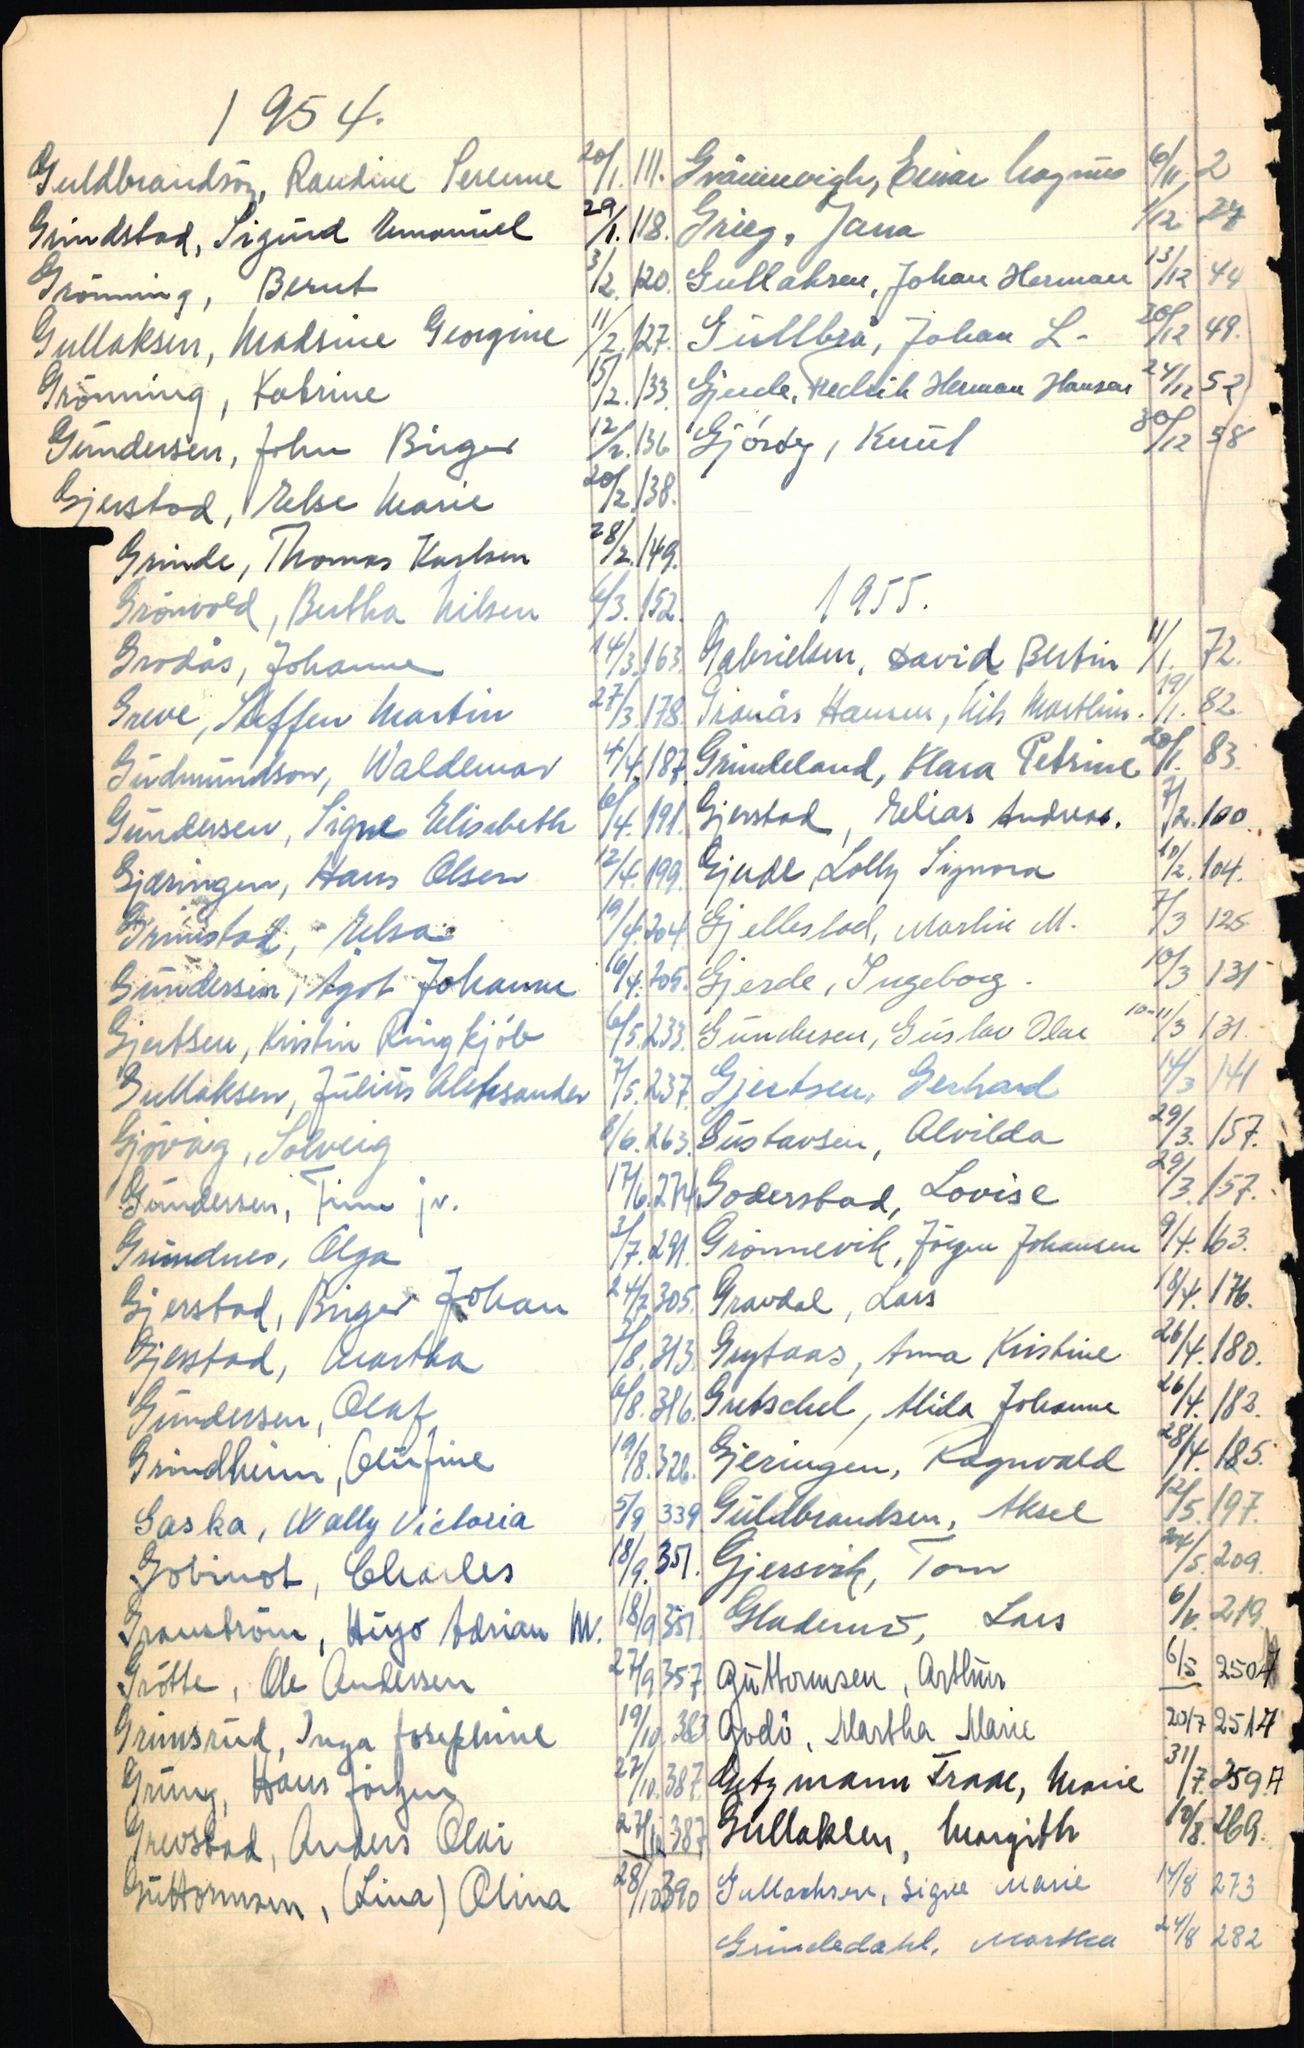 1954.
Guldbrandsøn, Randine Serenne 20/1. 111.
Grindstad, Sigurd Emanuel 29/1. 118.
Grönning, Bernt 3/2. 120.
Gullaksen, Madsine Georgine 11/2. 127.
Grönning, Katrine 15/2. 133.
Gundersen, John Birger 12/2. 136
Gjerstad, Else Marie 20/2. 138.
Grinde, Thomas Karlsen 28/2. 149.
Grönvold, Bertha Nilsen 6/3. 152.
Grodås, Johanne 14/3. 163.
Greve, Steffen Martin 27/3. 178.
Gudmundson, Waldemar 4/4. 187.
Gundersen, Signe Elisabeth 6/4. 191.
Gjæringen, Hans Olsen 12/4. 199.
Grimstad, Elsa 19/4. 204
Gundersen, Ågot Johanne 16/4. 205.
Gjertsen, Kristin Ringkjöb 6/5. 233.
Gullaksen, Julius Aleksander 7/5. 237.
Gjövåg, Solveig 8/6. 263.
Gundersen, Finn jr. 17/6. 274.
Grundnes, Olga 3/7. 291.
Gjerstad, Birger Johan 24/7. 305.
Gjerstad, Martha 2/8. 313.
Gundersen, Olaf 6/8. 316.
Grindheim, Olufine 19/8. 326.
Gaska, Wally Victoria 5/9 339
Gobinot, Charles 18/9. 351.
Granström, Hugo Adrian M. 18/9 351.
Grötte, Ole Andersen 27/9 357
Grimsrud, Inga Josephine 19/10. 383
Grung, Hans Jörgen 22/10. 387.
Grevstad, Anders Olai 27/10 387
Guttormsen, (Lina) Olina 28/10 390
Grännevigh, Einar Magnus 6/11, 2
Grieg, Jana 1/12 27
Gullaksen, Johan Herman 13/12 44
Gullbrå, Johan L. 20/12 49.
Gjerde, Fredrik Herman Hansen 24/12 52
Gjöröy, Knut 30/12 58
1955.
Gabrielsen, David Bertin 11/1. 72.
Granås Hansen, Nils Marthin. 19/1. 82.
Grindeland, Klara Petrine 20/1. 83.
Gjerstad, Elias Andreas. 7/2. 100.
Gjerde, Lolly Signora 10/2. 104.
Gjellestad, Martin M. 7/3 125
Gjerde, Ingeborg. 10/3 131
Gundersen, Gustav Olai 10-11/3 131.
Gjertsen, Gerhard 14/3 141
Gustavsen, Alvilda 29/3. 157.
Goderstad, Lovise 29/3. 157.
Grönnevik, Jörgen Johansen 9/4. 163.
Gravdal, Lars 18/4. 176.
Grytaas, Anna Kristine 26/4. 180.
Gretschel, Alida Johanne 26/4. 182.
Gjeringen, Ragnvald 28/4. 185.
Guldbrandsen, Aksel 12/5. 197.
Gjersvik, Tom 24/5. 209.
Lars 6/6. 219.
Guttormsen, Arthur 6/5 250A
Godö, Martha Marie 20/7 251A
Getz mann Traae, Marie 31/7. 259A
Gullaksen, Margith 10/8. 269.
Gullachsen, Signe Marie 14/8 273
Grindedahl, Martha 24/8 282